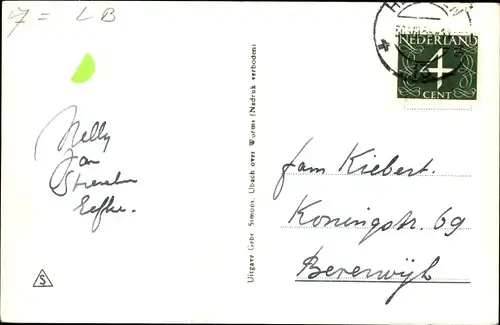 7 = LB
NEDERLAND
4
CENT
Nelly
Jan
Eefke.
Uitgave Gebr. Simons, Ubach over Worms (Nadruk verboden)
fam Kiebert.
Koningstr. 69
Beverwijk
S